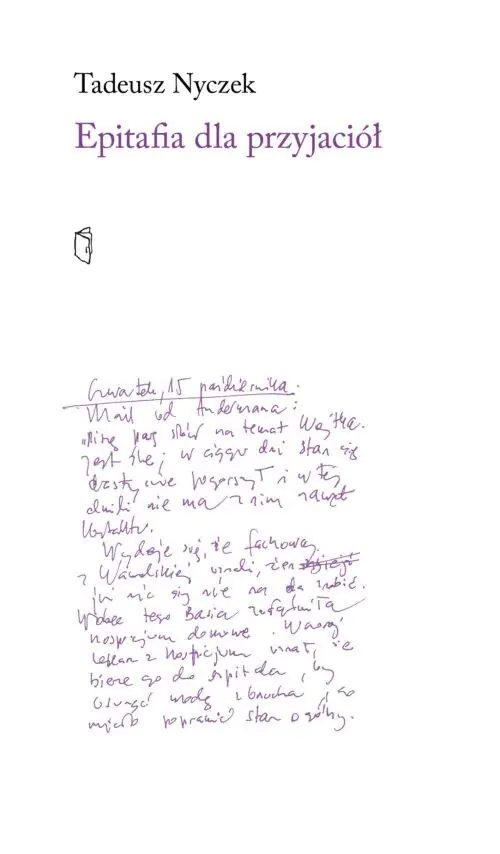 Tadeusz Nyczek
Epitafia dla przyjaciół
Czwartek, 15 października.
Mail od Andermana:
„Piszę parę słów na temat Wojtka.
Jest źle; w ciągu dni stan się
drastycznie pogorszył i w tej
chwili nie ma z nim nawet
kontaktu.
Wydaje się, że fachowcy
z Wawelskiej uznali, że
już nic się nie da zrobić.
Wobec tego Basia załatwiła
hospicjum domowe. Wczoraj
lekarz z hospicjum uznał, że
bierze go do szpitala, by
usunąć wodę z brzucha, co
miało poprawić stan ogólny.